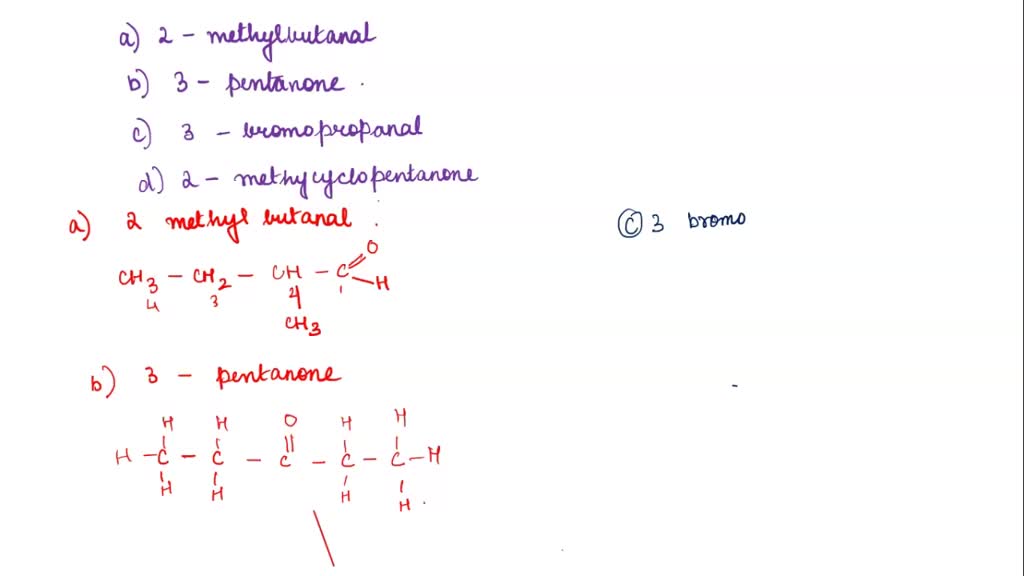 a) 2 - methylbutanal
b) 3 - pentanone .
c) 3 - bromopropanal
d) 2 - methycyclopentanone
a) 2 methyl butanal .
O
CH3 - CH2 - CH - C - H
4 3 1
CH3
b) 3 - pentanone
H H O H H
H - C - C - C - C - C - H
H H H H
C 3 bromo